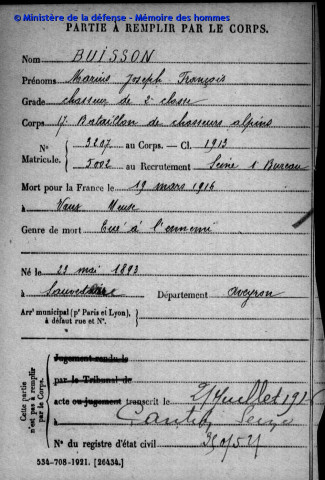 © Ministère de la défense - Mémoire des hommes
PARTIE À REMPLIR PAR LE CORPS.
Nom BUISSON
Prénoms Marius Joseph François
Grade chasseur de 2e classe
Corps 17e Bataillon de chasseurs alpins
N° 3207 au Corps. — Cl. 1913
Matricule. 5002 au Recrutement Seine 1 Bureau
Mort pour la France le 19 mars 1916
à Vaux Meuse
Genre de mort Tué à l'ennemi
Né le 23 mai 1893
à Département Aveyron
Arr' municipal (p' Paris et Lyon),
à défaut rue et N°.
Cette partie
n'est pas à remplir
par le Corps.
Jugement rendu le
par le Tribunal de
acte ou jugement transcrit le Juillet
Seine
N° du registre d'état civil
534-708-1921. [26434.]